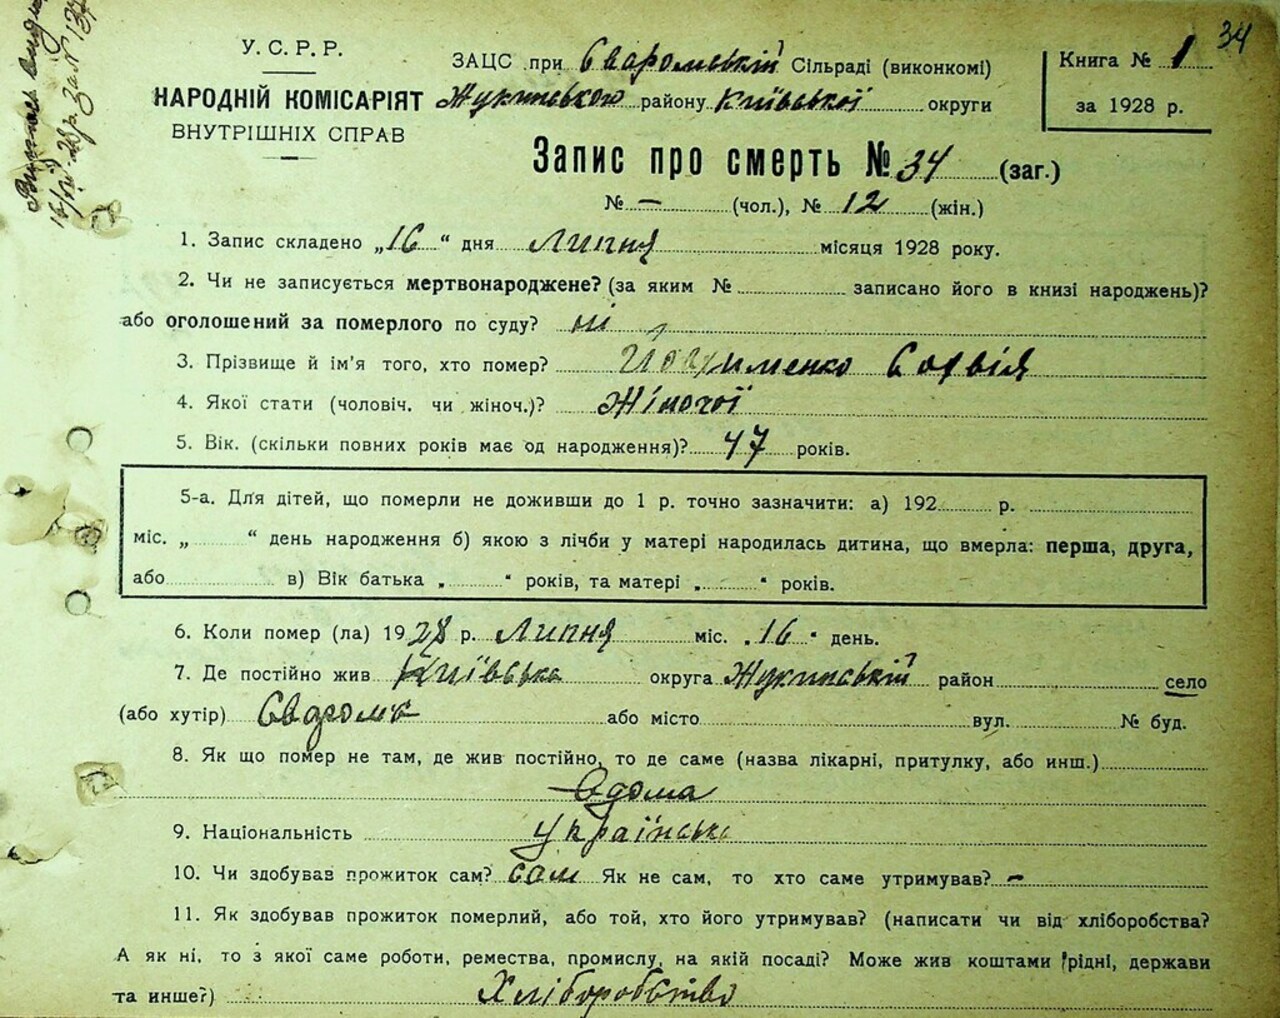 34
У. С. Р. Р.
НАРОДНІЙ КОМІСАРІЯТ
ВНУТРІШНІХ СПРАВ
ЗАЦС при Сваромській Сільраді (виконкомі)
Жукинського району Київської округи
Книга № 1
за 1928 р.
Запис про смерть № 34 (заг.)
№ — (чол.), № 12 (жін.)
1. Запис складено „16“ дня Липня місяця 1928 року.
2. Чи не записується мертвонароджене? (за яким № записано його в книзі народжень)?
або оголошений за померлого по суду? ні
3. Прізвище й ім'я того, хто помер? Йохименко Софія
4. Якої стати (чоловіч. чи жіноч.)? Жіночої
5. Вік. (скільки повних років має од народження)? 47 років.
5-а. Для дітей, що померли не доживши до 1 р. точно зазначити: а) 192 р.
міс. „ “ день народження б) якою з лічби у матері народилась дитина, що вмерла: перша, друга,
або в) Вік батька „ “ років, та матері „ “ років.
6. Коли помер (ла) 1928 р. Липня міс. „16“ день.
7. Де постійно жив Київська округа Жукинський район село
(або хутір) Сваромє або місто вул. № буд.
8. Як що помер не там, де жив постійно, то де саме (назва лікарні, притулку, або инш.)
вдома
9. Національність українська
10. Чи здобував прожиток сам? сам Як не сам, то хто саме утримував? —
11. Як здобував прожиток померлий, або той, хто його утримував? (написати чи від хліборобства?
А як ні, то з якої саме роботи, ремества, промислу, на якій посаді? Може жив коштами рідні, держави
та инше?) Хліборобство